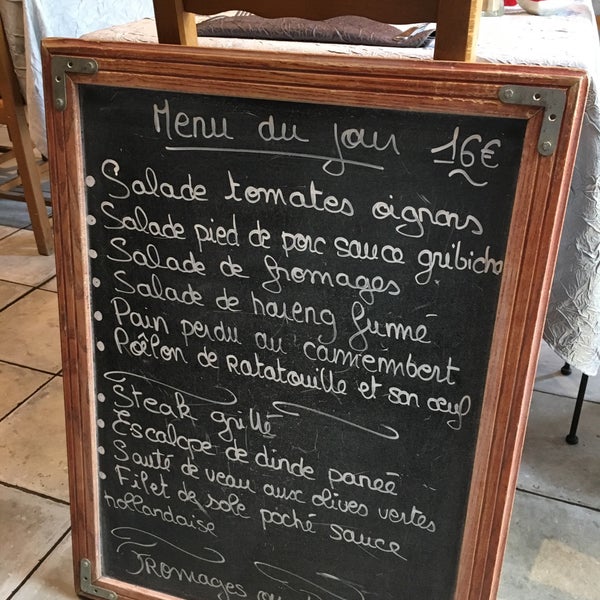 Menu du jour 16€
• Salade tomates oignons
• Salade pied de porc sauce gribiche
• Salade de fromages
• Salade de hareng fumé
• Pain perdu au camembert
• Poêlon de Ratatouille et son œuf
• Steak grillé
• Escalope de dinde paneé
• Sauté de veau aux olives vertes
• Filet de sole poché sauce
hollandaise
Fromages ou